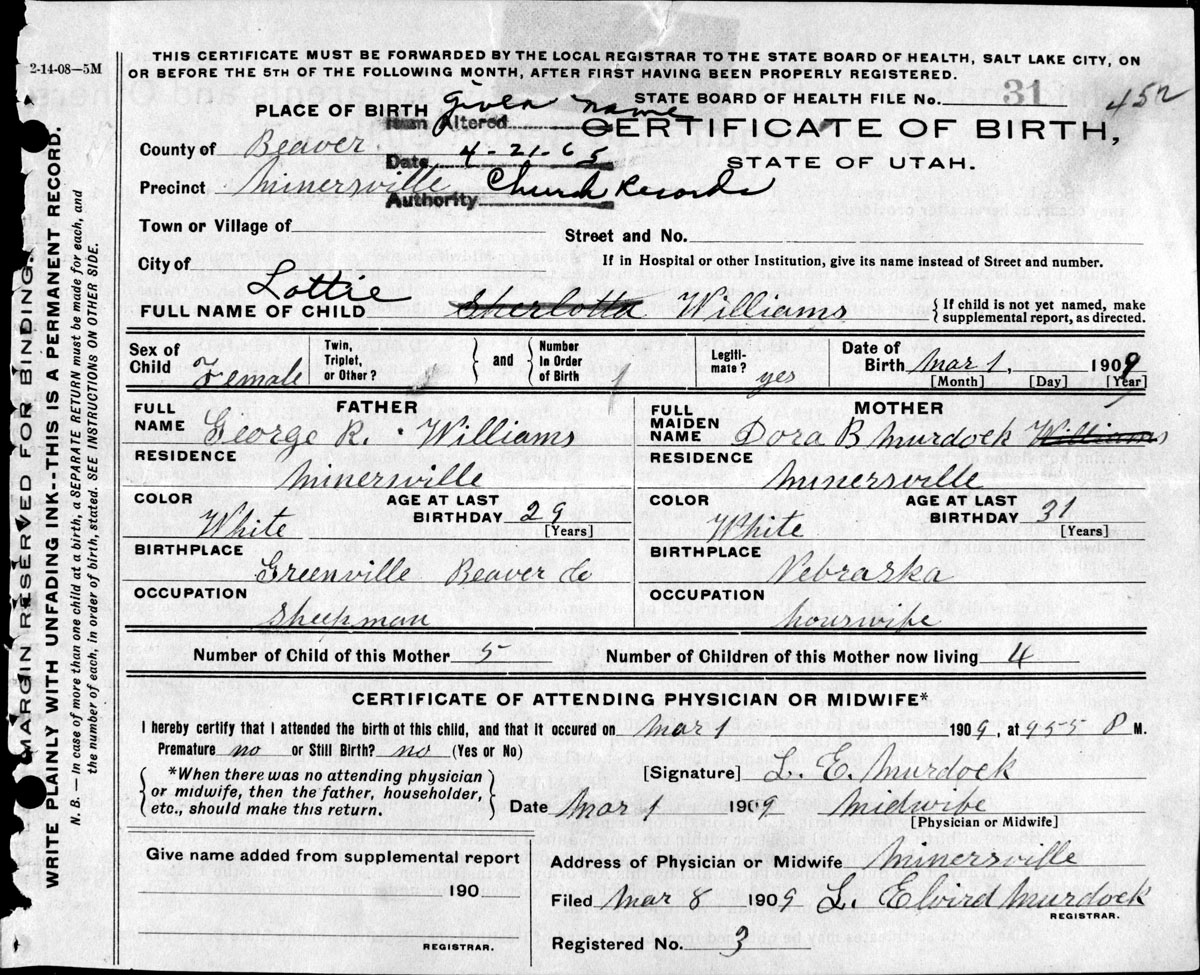 2-14-08—5M
THIS CERTIFICATE MUST BE FORWARDED BY THE LOCAL REGISTRAR TO THE STATE BOARD OF HEALTH, SALT LAKE CITY, ON
OR BEFORE THE 5TH OF THE FOLLOWING MONTH, AFTER FIRST HAVING BEEN PROPERLY REGISTERED.
STATE BOARD OF HEALTH FILE No. 31
452
PLACE OF BIRTH
Given name
Item Altered
CERTIFICATE OF BIRTH,
STATE OF UTAH.
County of Beaver
Date 4-21-65
Precinct Minersville
Authority Church Records
Town or Village of
Street and No.
City of
If in Hospital or other Institution, give its name instead of Street and number.
Lottie
FULL NAME OF CHILD Sherlotta Williams
{ If child is not yet named, make
supplemental report, as directed.
Sex of Child Female
Twin, Triplet, or Other? 1
and
Number In Order of Birth 1
Legiti-mate? yes
Date of Birth Mar 1, 1909
[Month] [Day] [Year]
FATHER
FULL NAME George R. Williams
RESIDENCE
Minersville
COLOR White
AGE AT LAST BIRTHDAY 29 [Years]
BIRTHPLACE
Greenville Beaver Co
OCCUPATION
Sheepman
MOTHER
FULL MAIDEN NAME Dora B Murdock Williams
RESIDENCE
Minersville
COLOR White
AGE AT LAST BIRTHDAY 31 [Years]
BIRTHPLACE
Nebraska
OCCUPATION
houswife
Number of Child of this Mother 5 Number of Children of this Mother now living 4
CERTIFICATE OF ATTENDING PHYSICIAN OR MIDWIFE*
I hereby certify that I attended the birth of this child, and that it occured on Mar 1 1909, at 955 P M.
Premature no or Still Birth? no (Yes or No)
{ *When there was no attending physician
or midwife, then the father, householder,
etc., should make this return. }
[Signature] L. E. Murdock
Date Mar 1 1909 Midwife
[Physician or Midwife]
Give name added from supplemental report
190
REGISTRAR.
Address of Physician or Midwife Minersville
Filed Mar 8 1909 L. Elvird Murdock
REGISTRAR.
Registered No. 3
MARGIN RESERVED FOR BINDING.
WRITE PLAINLY WITH UNFADING INK--THIS IS A PERMANENT RECORD.
N. B. — In case of more than one child at a birth, a SEPARATE RETURN must be made for each, and
the number of each, in order of birth, stated. SEE INSTRUCTIONS ON OTHER SIDE.